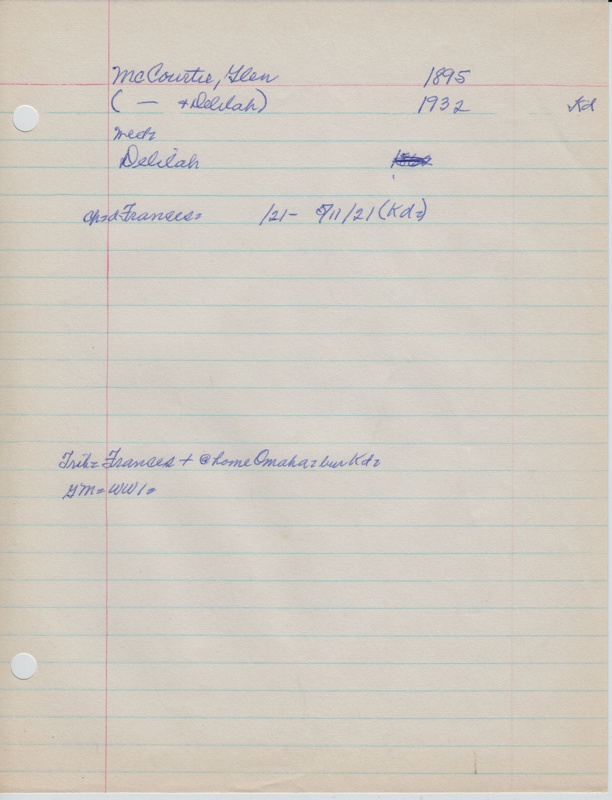 McCourtie, Glen 1895
( — + Delilah) 1932 Kd
med=
Delilah
ch=d Frances= /21- 5/11/21 (Kd=)
Trib= Frances + @ home Omaha= bur Kd=
GM= WW1=